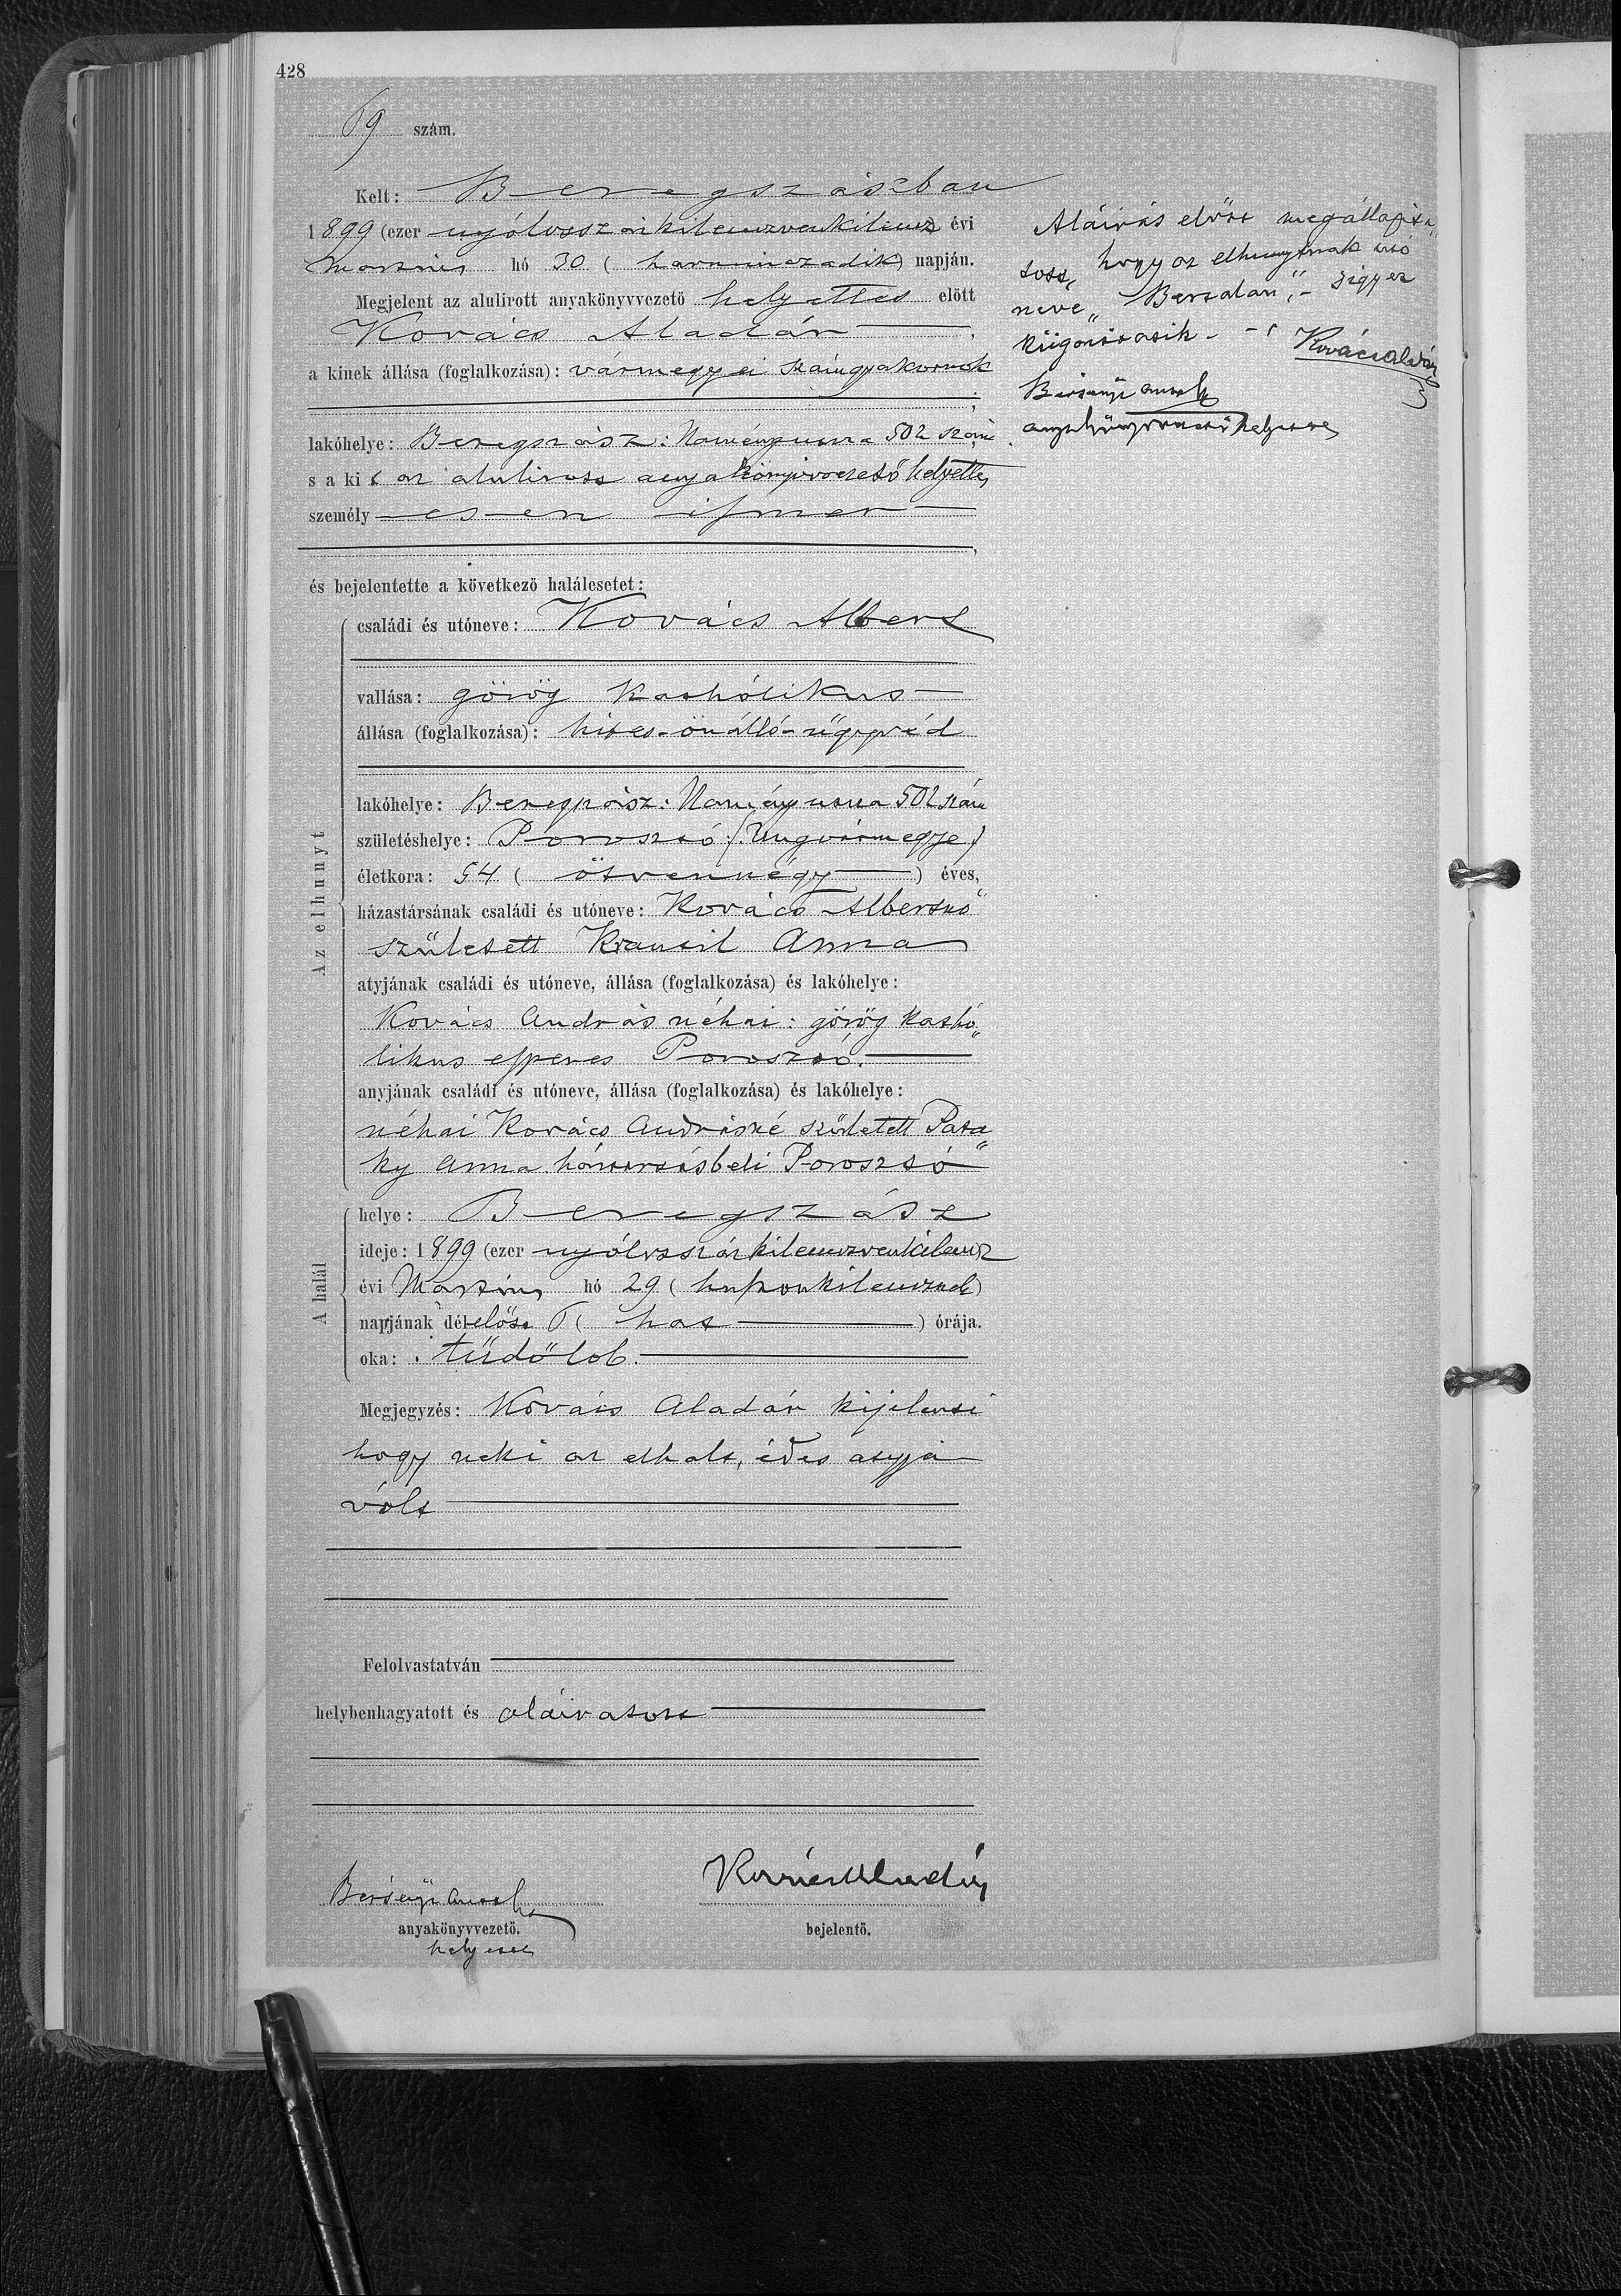 428
69 szám.
Kelt: Beregszászban
1899 (ezer nyólcszázkilenczvenkilencz) évi
Martius hó 30 (harminczadik) napján.
Megjelent az alulirott anyakönyvvezető helyettes előtt
Kovács Aladár
a kinek állása (foglalkozása): vármegyei számgyakornok
lakóhelye: Beregszász: Namény utcza 502 szám
s a kit az alulirott anyakönyvvezető helyettes
személyesen ismer
és bejelentette a következő halálesetet:
Az elhunyt
családi és utóneve: Kovács Albert
vallása: görög katholikus
állása (foglalkozása): hites-önálló-ügyvéd
lakóhelye: Beregszász: Namény utcza 502 szám
születéshelye: Poroszló (Ungvármegye)
életkora: 54 (ötvennégy) éves,
házastársának családi és utóneve: Kovács Albertné
született Anna
atyjának családi és utóneve, állása (foglalkozása) és lakóhelye:
Kovács András néhai: görög katho„
likus esperes
anyjának családi és utóneve, állása (foglalkozása) és lakóhelye:
néhai Kovács Andrásné született Pata„
ky Anna háztartásbeli
A halál
helye: Beregszász
ideje: 1899 (ezer nyólcszázkilenczvenkilencz
évi Martius hó 29 (huszonkilenczedik)
napjának délelőtt 6 (hat) órája.
oka: tüdőlob.
Megjegyzés: Kovács Aladár kijelenti
hogy neki az elhalt, édes atyja
vólt
Felolvastatván
helybenhagyatott és aláiratott
anyakönyvvezető.
helyettes
Kovács Aladár
bejelentő.
Aláirás előtt megállapitta„
tott, hogy az elhunytnak utó
neve „Bertalan",- s igy ez
kiigazittatik -
Kovács Aladár
anyakönyvvezető helyettes